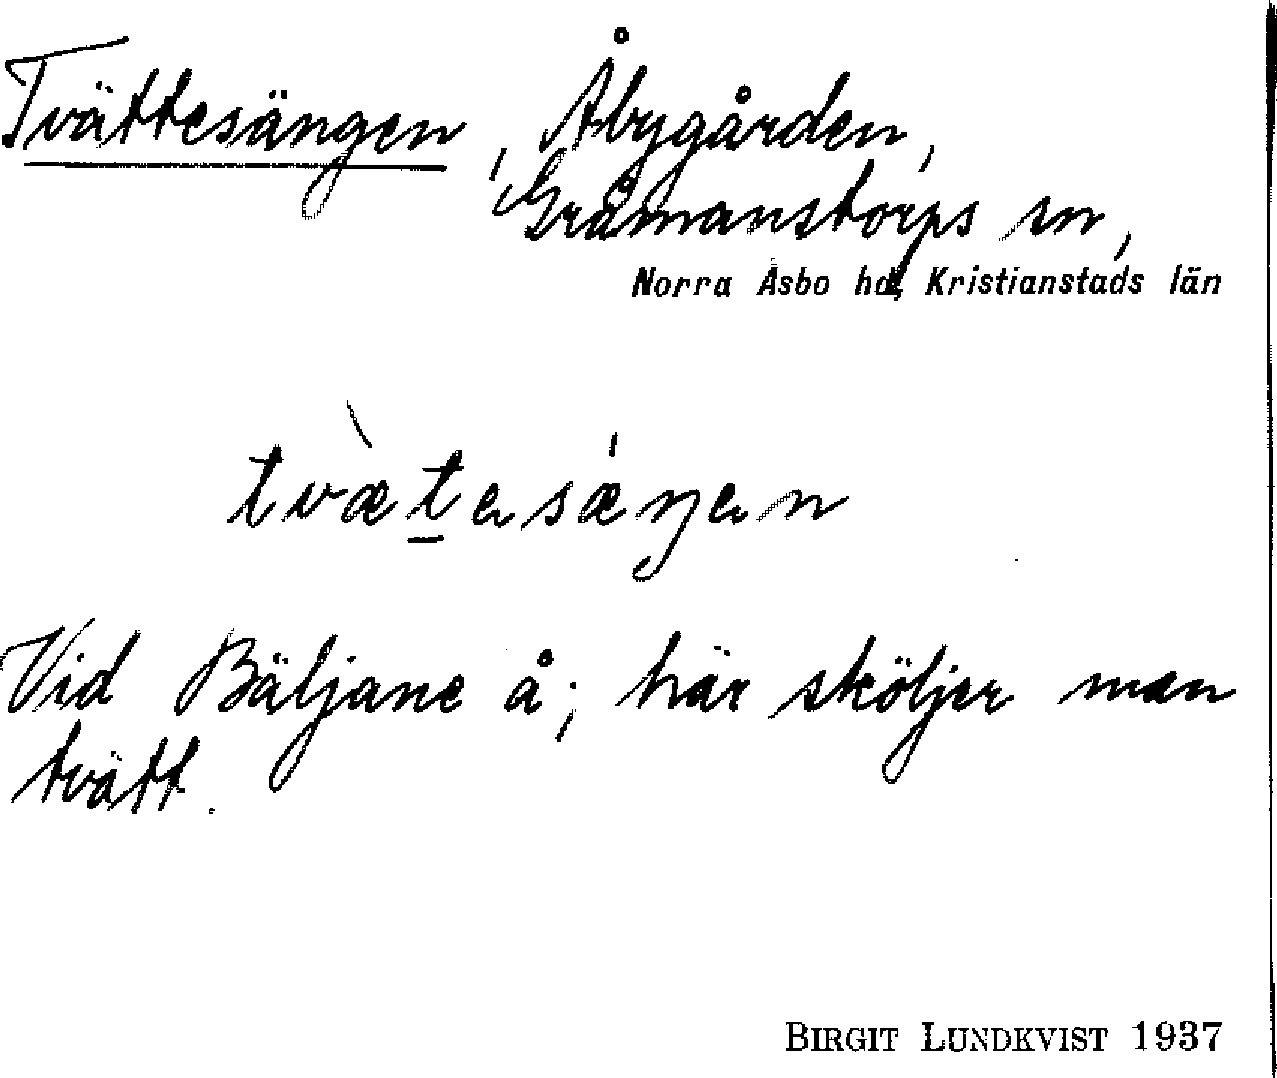 Tvättesängen, Åbygården,
Gråmanstorps sn,
Norra Åsbo hd, Kristianstads län
tvæ̀tesǽŋen
Vid Bäljane å; här sköljer man
tvätt.
BIRGIT LUNDKVIST 1937